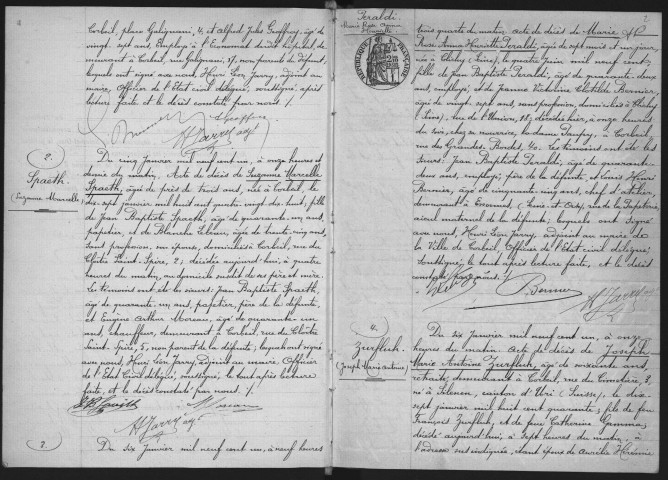 Corbeil, place Galignani, 4, et Alfred Jules Geoffroy, âgé de
vingt-sept ans, employé à l'Economat dudit hôpital, de-
meurant à Corbeil, rue Galignani, 37, non parent du défunt,
lesquels ont signé avec nous, Henri Léon Jarry, adjoint au
maire, Officier de l'Etat civil délégué, soussigné, après
lecture faite et le décès constaté par nous./.
HJarry adjt
2.
Spaeth.
(Suzanne Marcelle)
Du cinq Janvier mil neuf cent un, à onze heures et
demie du matin. Acte de décès de Suzanne Marcelle
Spaeth, âgée de près de trois ans, née à Corbeil, le
dix-sept janvier mil huit cent quatre-vingt-dix-huit, fille
de Jean Baptiste Spaeth, âgé de quarante-un ans,
papetier, et de Blanche, âgée de trente-cinq ans,
sans profession, son épouse, domiciliés à Corbeil, rue du
Cloître Saint-Spire, 21; décédée aujourd'hui, à quatre
heures du matin, au domicile susdit de ses père et mère.
Les témoins ont été les sieurs: Jean Baptiste Spaeth,
âgé de quarante-un ans, papetier, père de la défunte,
et Eugène Arthur Moreau, âgé de quarante-un
ans, chauffeur, demeurant à Corbeil, rue du Cloître
Saint-Spire, 5, non parent de la défunte; lesquels ont signé
avec nous, Henri Léon Jarry, Adjoint au maire, Officier
de l'Etat Civil délégué, soussigné, le tout après lecture
faite, et le décès constaté par nous./.
HJarry adjt
3.
Du six Janvier mil neuf cent un, à neuf heures
2
Peraldi.
Marie Rose Anna
Henriette
REPUBLIQUE FRANÇAISE
trois quarts du matin. Acte de décès de Marie
Rose Anna Henriette Peraldi, âgée de sept mois et un jour,
née à Clichy (Seine), le quatre juin mil neuf cent,
fille de Jean Baptiste Peraldi, âgé de quarante-deux
ans, employé, et de Jeanne Victorine Clotilde Bernier,
âgée de vingt-sept ans, sans profession, domiciliés à Clichy
(Seine), rue de l'Union, 18; décédée hier, à onze heures
du soir, chez sa nourrice, la dame, à Corbeil,
rue des Grandes Bordes, 40. Les témoins ont été les
sieurs: Jean Baptiste Peraldi, âgé de quarante-
deux ans, employé, père de la défunte, et Louis Henri
Bernier, âgé de cinquante-cinq ans, chef d'atelier,
demeurant à Essonnes, (Seine-et-Oise), rue de la Papeterie,
aïeul maternel de la défunte; lesquels ont signé
avec nous, Henri Léon Jarry, adjoint au maire de
la Ville de Corbeil, Officier de l'Etat civil délégué,
soussigné, le tout après lecture faite, et le décès
constaté par nous./.
Bernier
HJarry adjt
4.
Zurfluh.
(Joseph Marie Antoine)
Du six Janvier mil neuf cent un, à onze
heures du matin. Acte de décès de Joseph
Marie Antoine Zurfluh, âgé de soixante ans,
retraité, demeurant à Corbeil, rue du Cimetière, 3,
né à Silenen, canton d'Uri (Suisse), le dix-
sept janvier mil huit cent quarante; fils de feu
François Zurfluh, et de feue Catherine Gemma;
décédé aujourd'hui, à sept heures du matin, à
l'adresse susindiquée, étant époux de Aurélie